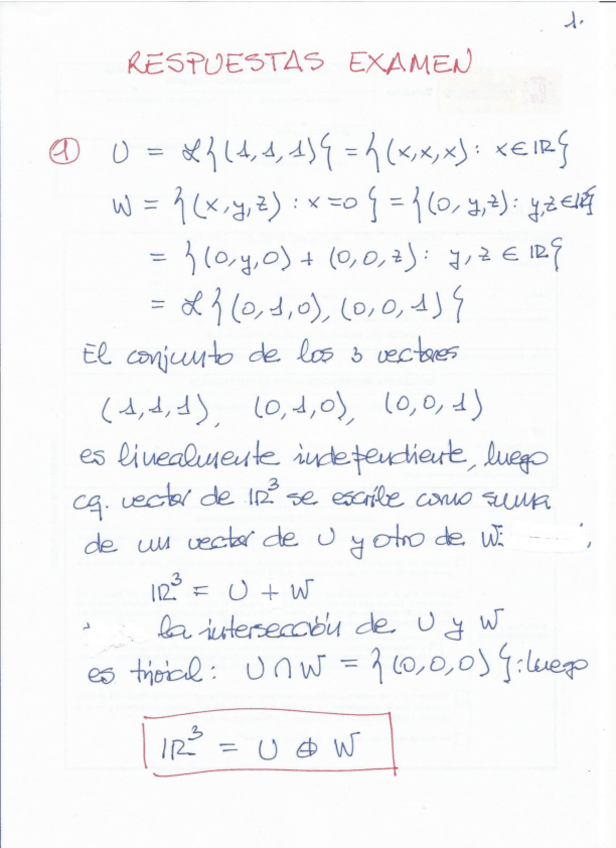 1.
RESPUESTAS EXAMEN
① U = ℒ{(1,1,1)} = {(x,x,x): x∈ℝ}
W = {(x,y,z): x=0} = {(0,y,z): y,z∈ℝ}
= {(0,y,0) + (0,0,z): y,z ∈ ℝ}
= ℒ{(0,1,0), (0,0,1)}
El conjunto de los 3 vectores
(1,1,1), (0,1,0), (0,0,1)
es linealmente independiente, luego
cq. vector de ℝ³ se escribe como suma
de un vector de U y otro de W: ,
ℝ³ = U + W
la intersección de U y W
es trivial: U∩W = {(0,0,0)}: luego
ℝ³ = U ⊕ W